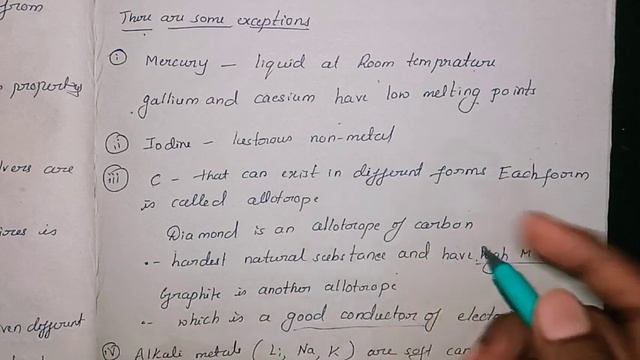 from
There are some exceptions
i Mercury - liquid at Room temprature
property
gallium and caesium have low melting points
ii Iodine - lustorous non-metal
iii C - that can exist in different forms Each foorm
vers are
is called allotorope
Diamond is an allotorope of carbon
is
.- hardest natural substance and have high M
Graphite is another allotorope
.- which is a good conductor of elect
different
iv Alkali metals (Li, Na, K) are soft can